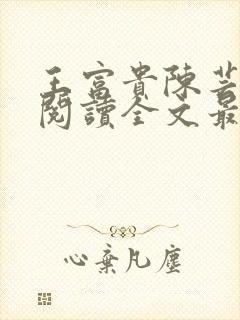 王富貴陳芸
閱讀全文最
心棄凡塵